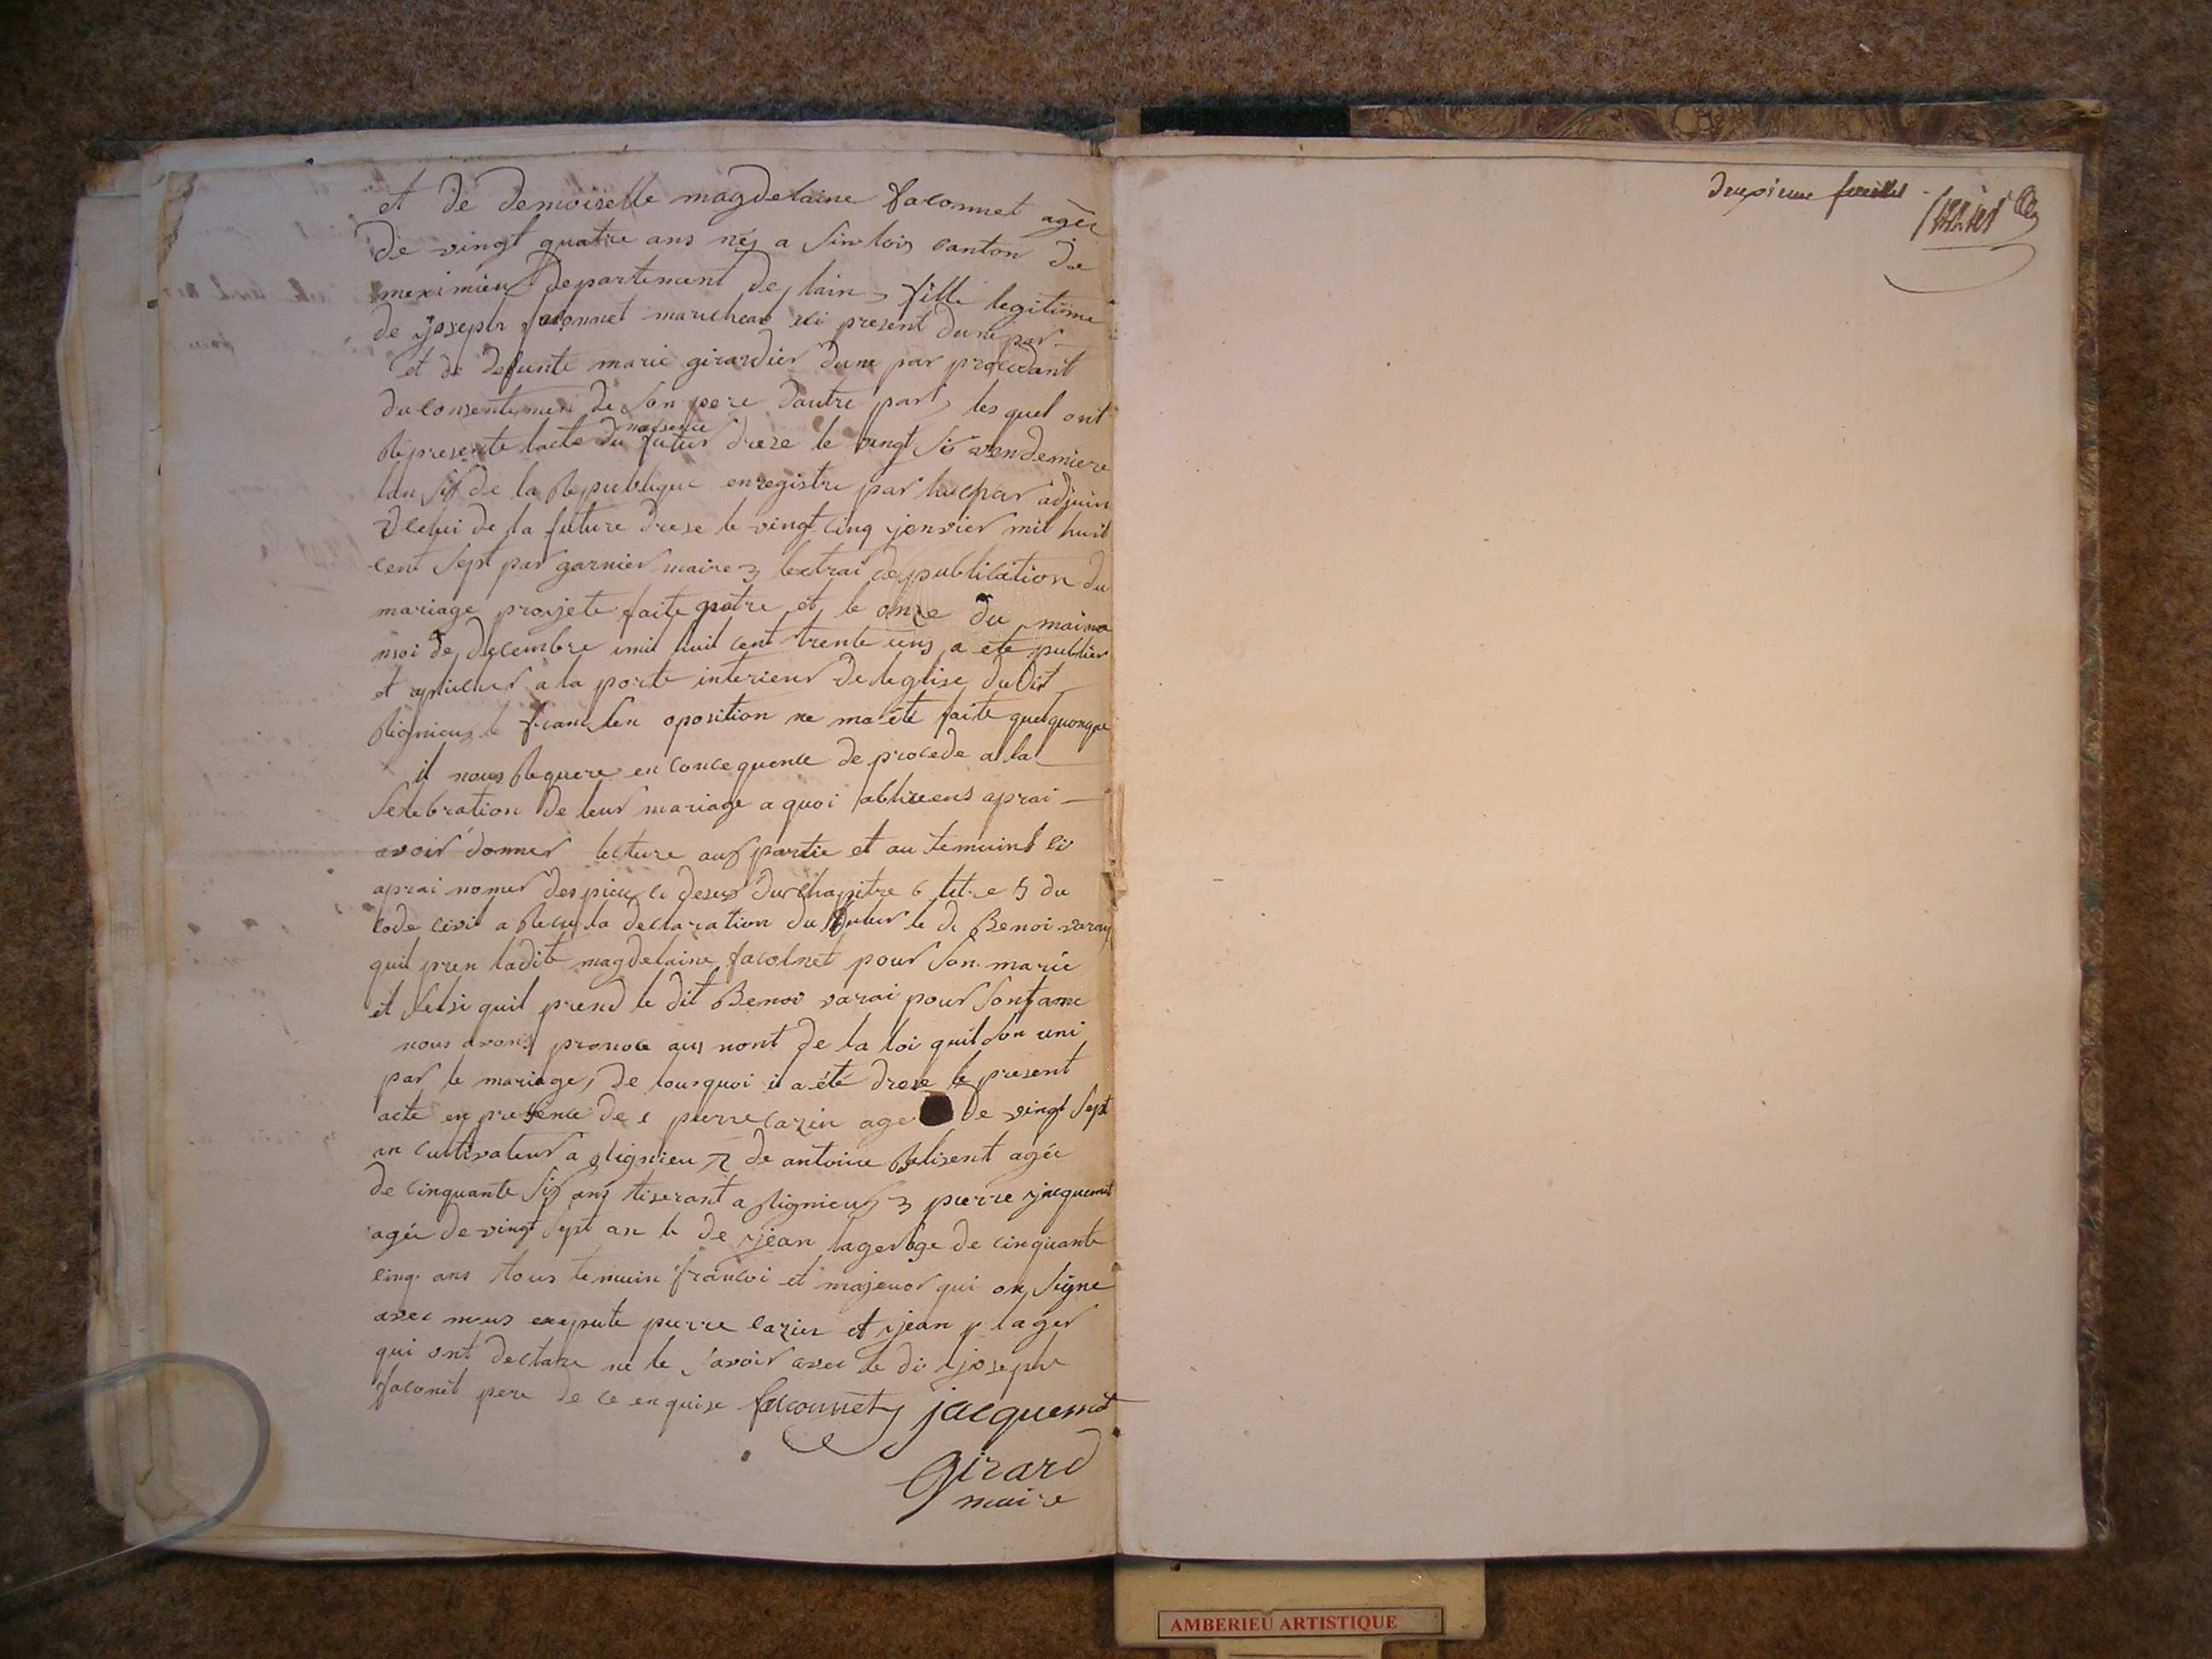 et de demoiselle magdelaine faconnet agée
de vingt quatre ans née a canton de
meximieu departement de lain fille legitime
de joseph faconnet present dune par
et de defunte marie girardier dune par procedant
du consentemen de son pere dautre part les quel ont
Represente lacte du naisence futur drese le vingt six vendemiere
lan six de la Republique enregistre par adjuin
celui de la future drese le vingt cinq janvier mil huit
cent sept par garnier maire 3 lextrai de publication du
mariage projete faite quatre et le onze du
moi de decembre mil huit cent trente uns a ete publier
et a la porte interieur de leglise dudit
Rignieux le franc oposition ne ma été faite quelquonque
il nous Requere en concequence de procede a la
selebration de leur mariage a quoi aprai
avoir donner lecture aux partie et au temuins ci
aprai nomer des piece ci desus du chapitre 6 titre 5 du
code civil a Recu la declaration du futur le di Benoi varay
quil pren ladite magdelaine facolnet pour son marie
et selsi quil prend le dit Benoi varai pour son fame
nous avons pronoce aus nont de la loi quil son uni
par le mariage, de tousquoi il a été drese le present
acte en presence de 1 pierre cazin age de vingt sept
an cultivateur a Rignieu 2 de antoine agée
de cinquante six ans tiserant a Rignieux 3 pierre jacquemet
agée de vingt sept an 4 de jean lager age de cinquante
cinq ans tous temuin francoi et majeuor qui on signe
avec nous exepute pierre cazin et jean lager
qui ont declare ne le savoir avec le di joseph
faconet pere de ce enquise faconnet jacquemet
Girard
maire
deuxieme feuillet